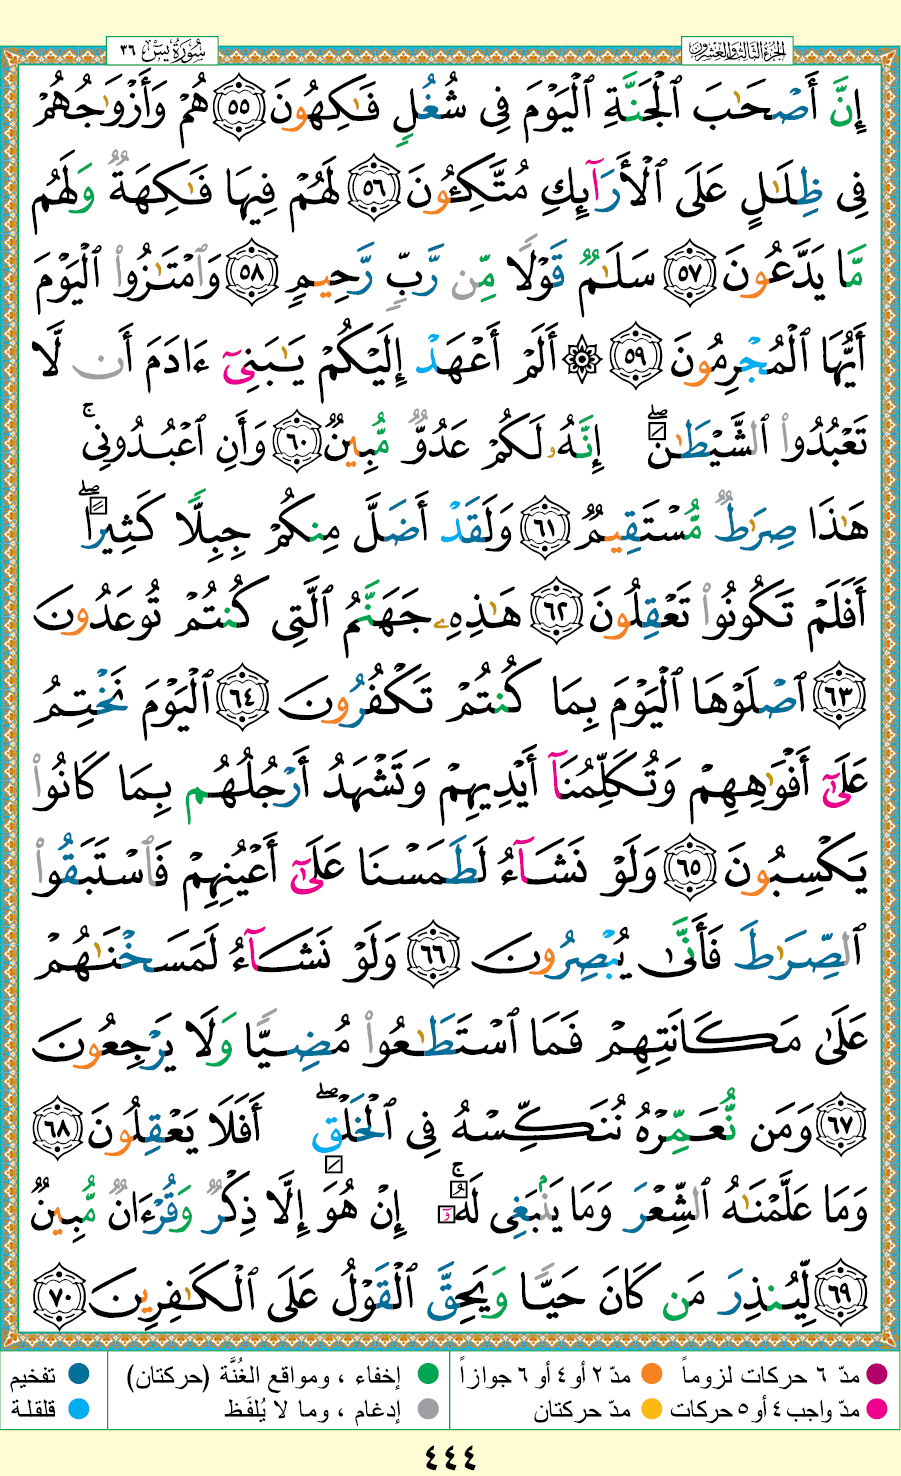 الجُزْءُ الثَّالِثُ وَالعِشْرُونَ
سُورَةُ يسٓ ٣٦
إِنَّ أَصۡحَٰبَ ٱلۡجَنَّةِ ٱلۡيَوۡمَ فِى شُغُلٍ فَٰكِهُونَ ٥٥ هُمۡ وَأَزۡوَٰجُهُمۡ
فِى ظِلَٰلٍ عَلَى ٱلۡأَرَآئِكِ مُتَّكِـُٔونَ ٥٦ لَهُمۡ فِيهَا فَٰكِهَةٌ وَلَهُم
مَّا يَدَّعُونَ ٥٧ سَلَٰمٌ قَوۡلًا مِّن رَّبٍّ رَّحِيمٍ ٥٨ وَٱمۡتَٰزُواْ ٱلۡيَوۡمَ
أَيُّهَا ٱلۡمُجۡرِمُونَ ٥٩ ۞ أَلَمۡ أَعۡهَدۡ إِلَيۡكُمۡ يَٰبَنِىٓ ءَادَمَ أَن لَّا
تَعۡبُدُواْ ٱلشَّيۡطَٰنَۖ إِنَّهُۥ لَكُمۡ عَدُوٌّ مُّبِينٌ ٦٠ وَأَنِ ٱعۡبُدُونِىۚ
هَٰذَا صِرَٰطٌ مُّسۡتَقِيمٌ ٦١ وَلَقَدۡ أَضَلَّ مِنكُمۡ جِبِلًّا كَثِيرًاۖ
أَفَلَمۡ تَكُونُواْ تَعۡقِلُونَ ٦٢ هَٰذِهِۦ جَهَنَّمُ ٱلَّتِى كُنتُمۡ تُوعَدُونَ
٦٣ ٱصۡلَوۡهَا ٱلۡيَوۡمَ بِمَا كُنتُمۡ تَكۡفُرُونَ ٦٤ ٱلۡيَوۡمَ نَخۡتِمُ
عَلَىٰٓ أَفۡوَٰهِهِمۡ وَتُكَلِّمُنَآ أَيۡدِيهِمۡ وَتَشۡهَدُ أَرۡجُلُهُم بِمَا كَانُواْ
يَكۡسِبُونَ ٦٥ وَلَوۡ نَشَآءُ لَطَمَسۡنَا عَلَىٰٓ أَعۡيُنِهِمۡ فَٱسۡتَبَقُواْ
ٱلصِّرَٰطَ فَأَنَّىٰ يُبۡصِرُونَ ٦٦ وَلَوۡ نَشَآءُ لَمَسَخۡنَٰهُمۡ
عَلَىٰ مَكَانَتِهِمۡ فَمَا ٱسۡتَطَٰعُواْ مُضِيًّا وَلَا يَرۡجِعُونَ
٦٧ وَمَن نُّعَمِّرۡهُ نُنَكِّسۡهُ فِى ٱلۡخَلۡقِۖ أَفَلَا يَعۡقِلُونَ ٦٨
وَمَا عَلَّمۡنَٰهُ ٱلشِّعۡرَ وَمَا يَنۢبَغِى لَهُۥٓۚ إِنۡ هُوَ إِلَّا ذِكۡرٌ وَقُرۡءَانٌ مُّبِينٌ
٦٩ لِّيُنذِرَ مَن كَانَ حَيًّا وَيَحِقَّ ٱلۡقَوۡلُ عَلَى ٱلۡكَٰفِرِينَ ٧٠
مدّ ٦ حركات لزوماً مدّ ٢ أو ٤ أو ٦ جوازاً إخفاء ، ومواقع الغُنَّة (حركتان) تفخيم
مدّ واجب ٤ أو ٥ حركات مدّ حركتان إدغام ، وما لا يُلفَظ قلقلة
٤٤٤